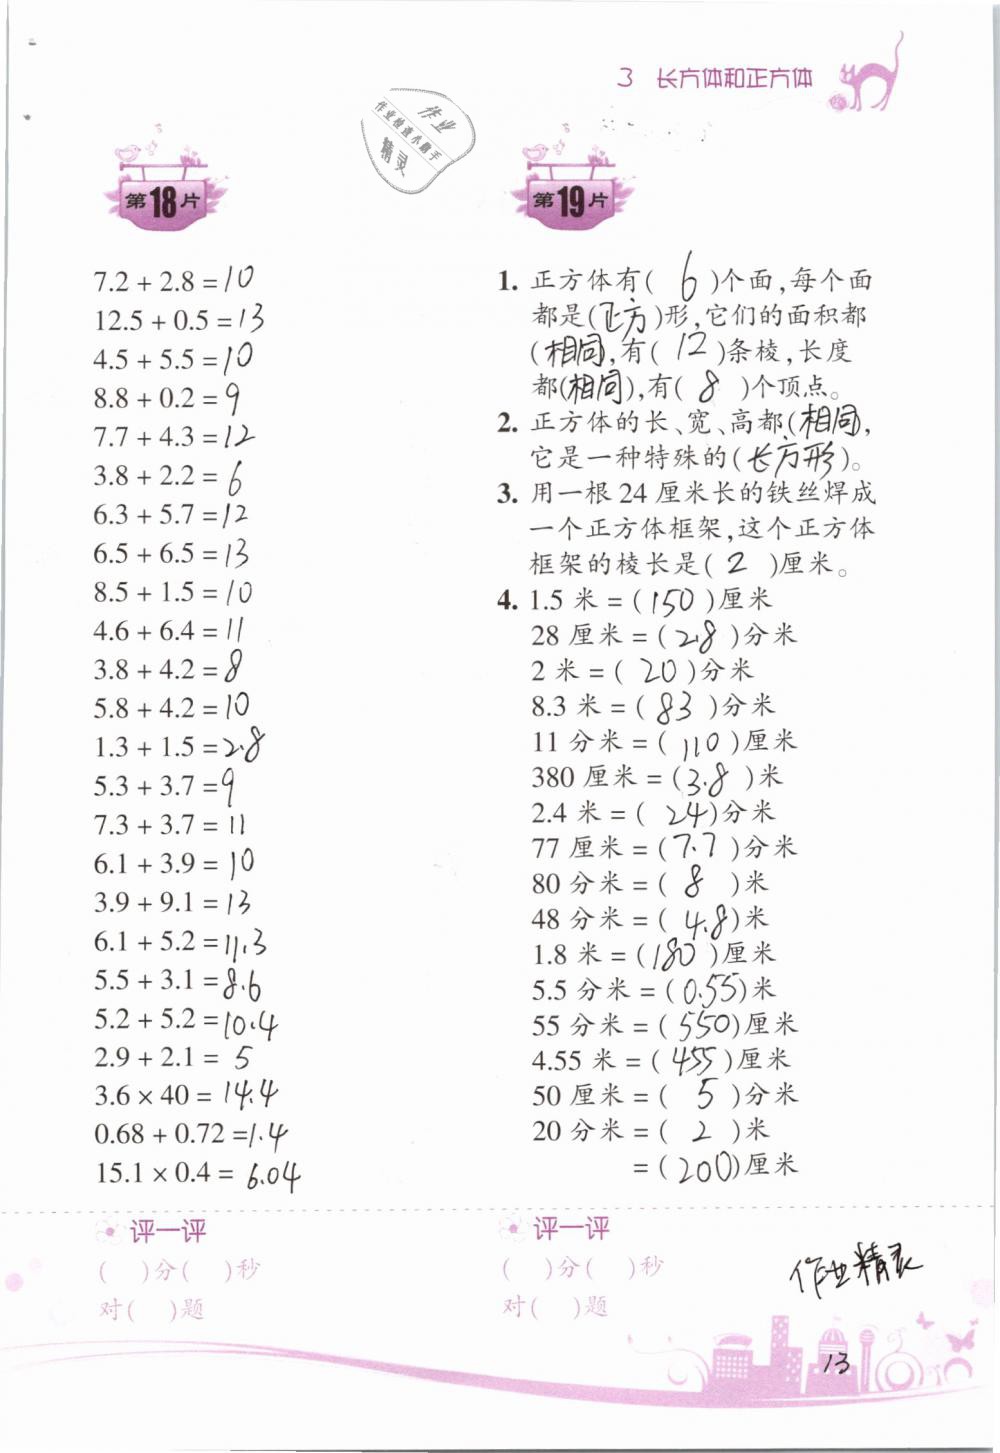 3 长方体和正方体
作业
作业检查小助手
精灵
第18片
7.2 + 2.8 = 10
12.5 + 0.5 = 13
4.5 + 5.5 = 10
8.8 + 0.2 = 9
7.7 + 4.3 = 12
3.8 + 2.2 = 6
6.3 + 5.7 = 12
6.5 + 6.5 = 13
8.5 + 1.5 = 10
4.6 + 6.4 = 11
3.8 + 4.2 = 8
5.8 + 4.2 = 10
1.3 + 1.5 = 2.8
5.3 + 3.7 = 9
7.3 + 3.7 = 11
6.1 + 3.9 = 10
3.9 + 9.1 = 13
6.1 + 5.2 = 11.3
5.5 + 3.1 = 8.6
5.2 + 5.2 = 10.4
2.9 + 2.1 = 5
3.6 × 40 = 14.4
0.68 + 0.72 = 1.4
15.1 × 0.4 = 6.04
评一评
( )分( )秒
对( )题
第19片
1. 正方体有( 6 )个面,每个面
都是(正方)形,它们的面积都
(相同),有( 12 )条棱,长度
都(相同),有( 8 )个顶点。
2. 正方体的长、宽、高都(相同),
它是一种特殊的(长方形)。
3. 用一根 24 厘米长的铁丝焊成
一个正方体框架,这个正方体
框架的棱长是( 2 )厘米。
4. 1.5 米 = ( 150 )厘米
28 厘米 = ( 2.8 )分米
2 米 = ( 20 )分米
8.3 米 = ( 83 )分米
11 分米 = ( 110 )厘米
380 厘米 = ( 3.8 )米
2.4 米 = ( 24 )分米
77 厘米 = ( 7.7 )分米
80 分米 = ( 8 )米
48 分米 = ( 4.8 )米
1.8 米 = ( 180 )厘米
5.5 分米 = ( 0.55 )米
55 分米 = ( 550 )厘米
4.55 米 = ( 455 )厘米
50 厘米 = ( 5 )分米
20 分米 = ( 2 )米
= ( 200 )厘米
评一评
( )分( )秒
对( )题
作业精灵
13